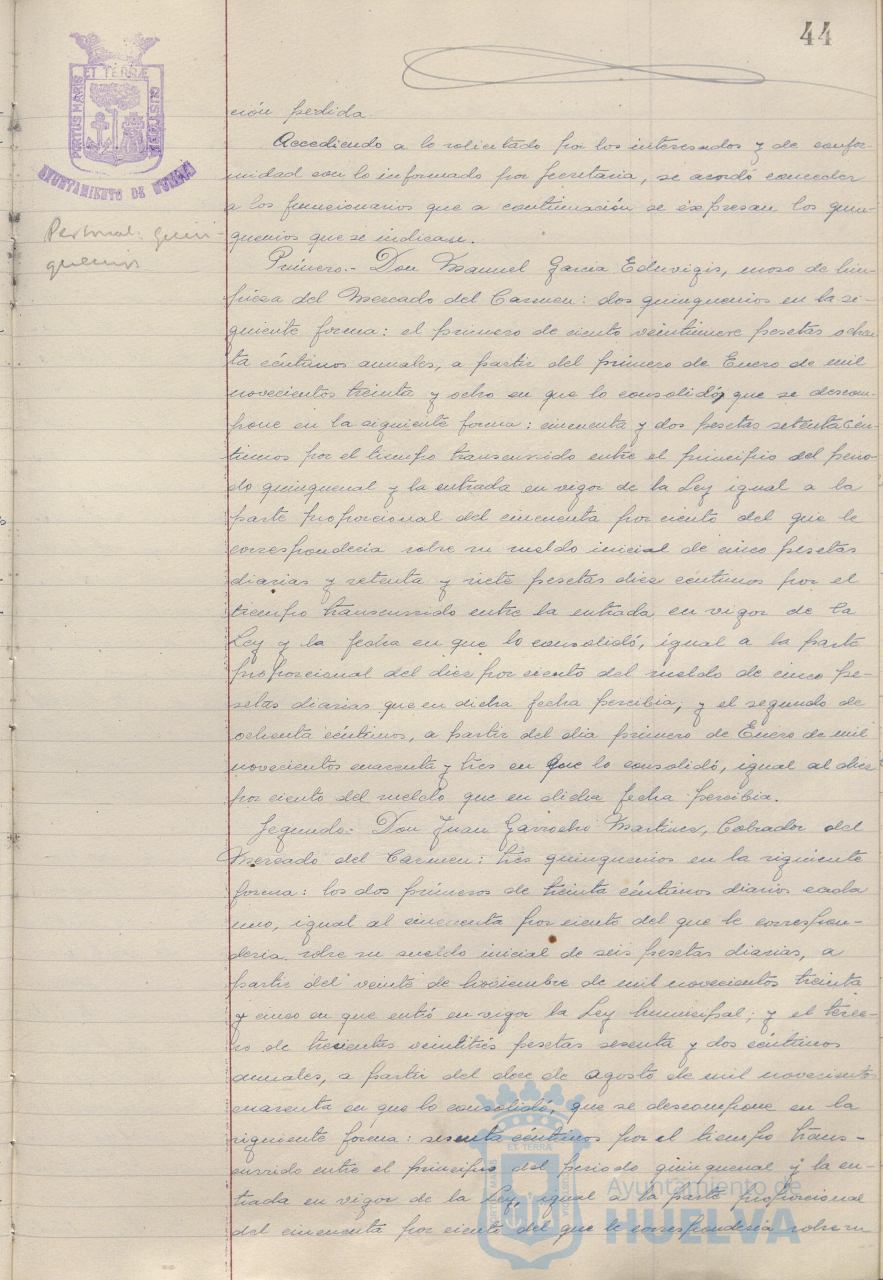 44
ET TERRÆ
PORTUS MARIS
CUSTODIA
AYUNTAMIENTO DE HUELVA
ción perdida.
Accediendo a lo solicitado por los interesados y de confor-
midad con lo informado por Secretaría, se acordó conceder
a los funcionarios que a continuación se expresan los quin-
quenios que se indican.
Personal: quin-
quenios
Primero.- Don Manuel García Eduvigis, mozo de lim-
pieza del Mercado del Carmen: dos quinquenios en la si-
guiente forma: el primero de ciento veintinueve pesetas ochen-
ta céntimos anuales, a partir del primero de Enero de mil
novecientos treinta y ocho en que lo consolidó, que se descom-
pone en la siguiente forma: cincuenta y dos pesetas setenta cén-
timos por el tiempo transcurrido entre el principio del perio-
do quinquenal y la entrada en vigor de la Ley igual a la
parte proporcional del cincuenta por ciento del que le
correspondería sobre su sueldo inicial de cinco pesetas
diarias y setenta y siete pesetas diez céntimos por el
tiempo transcurrido entre la entrada en vigor de la
Ley y la fecha en que lo consolidó, igual a la parte
proporcional del diez por ciento del sueldo de cinco pe-
setas diarias que en dicha fecha percibia, y el segundo de
ochenta céntimos, a partir del dia primero de Enero de mil
novecientos cuarenta y tres en que lo consolidó, igual al diez
por ciento del sueldo que en dicha fecha percibia.
Segundo: Don Juan Garrocho Martinez, Cobrador del
Mercado del Carmen: tres quinquenios en la siguiente
forma: los dos primeros de treinta céntimos diarios cada
uno, igual al cincuenta por ciento del que le correspon-
deria sobre su sueldo inicial de seis pesetas diarias, a
partir del veinte de Noviembre de mil novecientos treinta
y cinco en que entró en vigor la Ley Municipal; y el terce-
ro de trecientas veintitrés pesetas sesenta y dos céntimos
anuales, a partir del doce de agosto de mil novecientos
cuarenta en que lo consolidó, que se descompone en la
siguiente forma: sesenta céntimos por el tiempo trans-
currido entre el principio del periodo quinquenal y la en-
trada en vigor de la Ley, igual a la parte proporcional
del cincuenta por ciento del que le correspondería sobre su
Ayuntamiento de
HUELVA